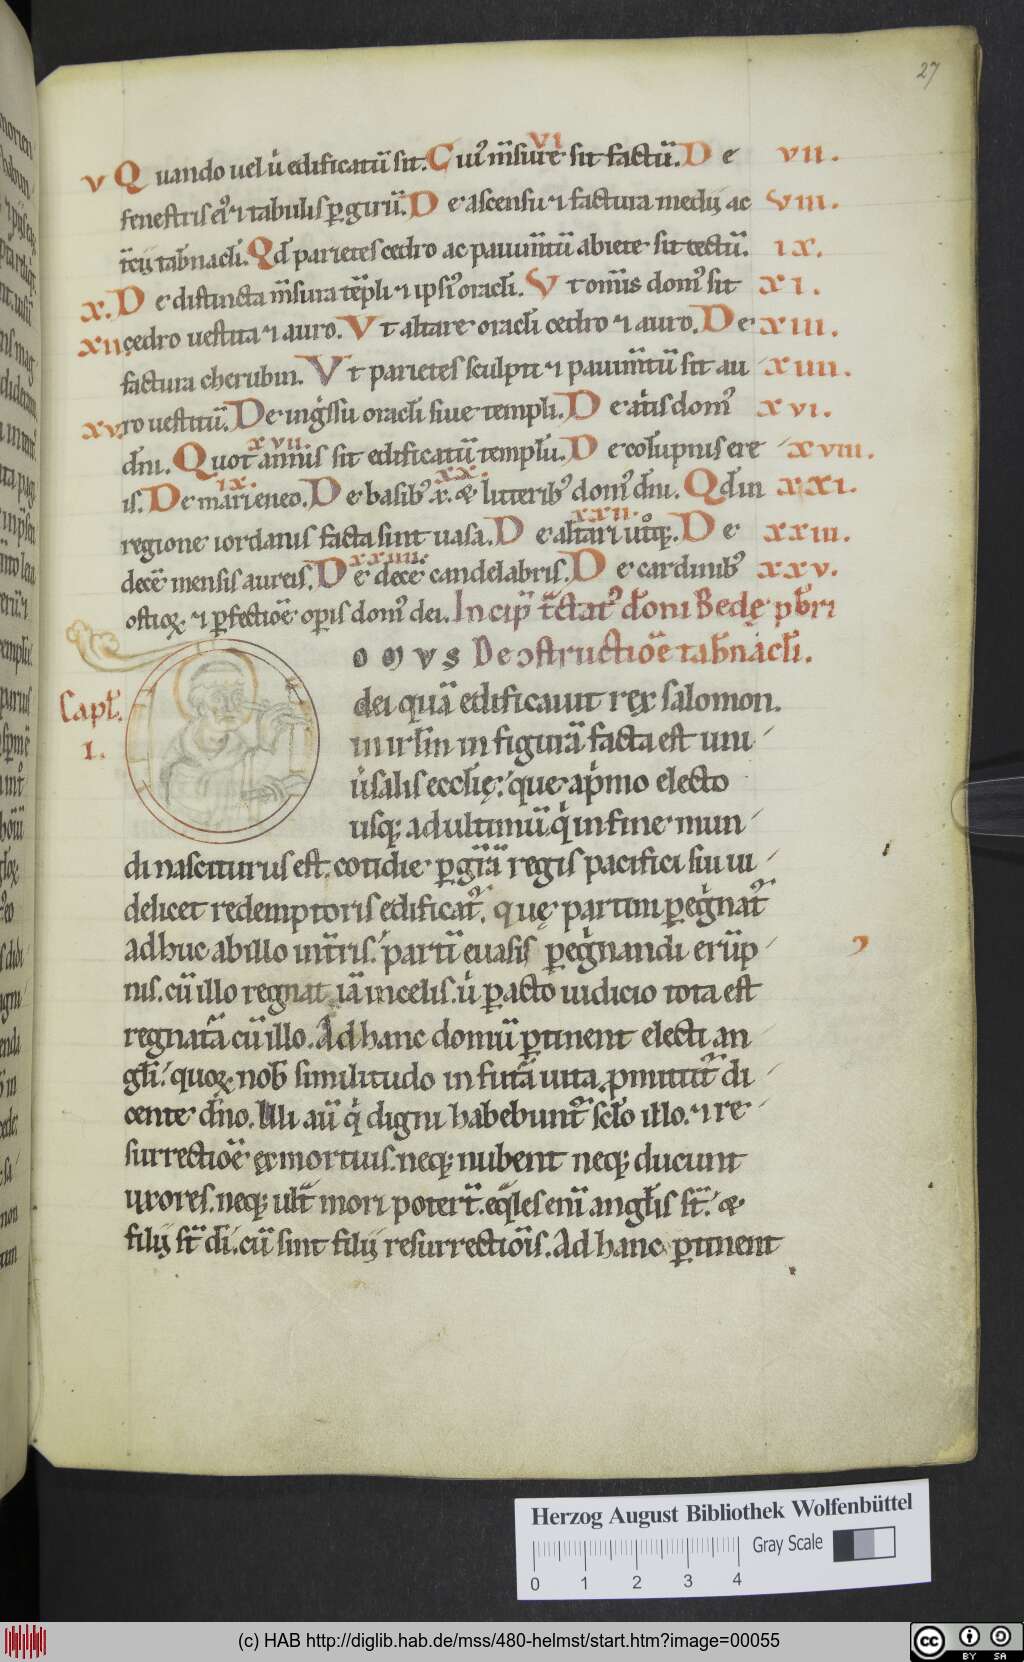 27
v Quando uel ů edificatū sit. vi Cuiꝰ m̄sure sit factū. De vii.
fenestris eiꝰ ⁊ tabulis ꝑ girū. De ascensu ⁊ factura medij ac viii.
t̄cij tab̄nacl̄i. Qd̄ parietes cedro ac pauim̄tū abiete sit tectū. ix.
x. De distincta m̄sura tēpli ⁊ ipsiꝰ oracl̄i. Vt om̄is domꝰ sit xi.
xii cedro uestita ⁊ auro. Vt altare oracl̄i cedro ⁊ auro. De xiii.
factura cherubin. Vt parietes sculpti ⁊ pauim̄tū sit au xiiii.
xv. ro uestitū. De ingͥssu oracl̄i siue templi. De atͥis domꝰ xvi.
dn̄i. Quot xvii. annis sit edificatū templū. De colūpnis ere xviii.
is. De ix. mari eneo. De basibꝰ x. xx. & luteribꝰ domꝰ dn̄i. Qd̄ in xxi.
regione iordanis facta sint uasa. De xxii. altari utͦqꝫ. De xxiii.
decē mensis aureis. De xxiiii. decē candelabris. De cardinibꝰ xxv.
ostioꝝ ⁊ ꝑfectiōe oꝑis domꝰ dei. Incip̄ t̄ctatꝰ dōni Bedę pb̄ri
OMVS De ɔstructiōe tab̄nacl̄i.
Capl̄. I.
dei quā edificauit rex salomon.
in irl̄m in figurā facta est uni
ůsalis eccl̄ię: que a pͥmo electo
usqꝫ ad ultimū qͥ in fine mun
di nasciturus est. cotidie ꝑ gr̄iā regis pacifici siu ui
delicet redemptoris edificat᷑. quę partim ꝑegͥnat᷑
adhuc ab illo in t̄ris. partī euasis ꝑegͥnandi erūp
nis. cū illo regnat iā in celis. ů ꝑacto iudicio tota est
regnatā cū illo. Ad hanc domū ꝑtinent electi an
gl̄i. quoꝝ nob̄ similitudo in futā uita ꝓmittit᷑ di
cente dn̄o. Illi aū qͥ digni habebunt᷑ scl̄o illo. ⁊ re
surrectiōe ex mortuis. neqꝫ nubent neqꝫ ducunt
uxores. neqꝫ ult̄ mori poter̄t. eqͣles enī angl̄is st̄. &
filij st̄ dī. cū sint filij resurrectiōis. Ad hanc ꝑtinent
Herzog August Bibliothek Wolfenbüttel
Gray Scale
0 1 2 3 4
(c) HAB http://diglib.hab.de/mss/480-helmst/start.htm?image=00055
cc BY SA